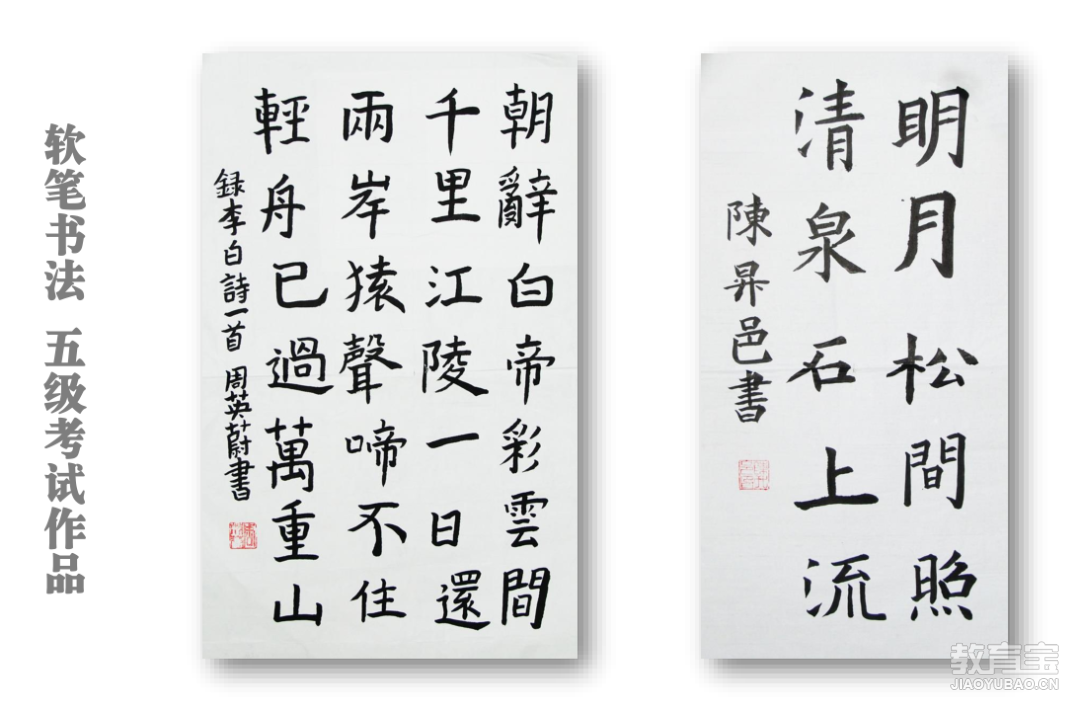 软笔书法 五级考试作品
朝辭白帝彩雲間
千里江陵一日還
兩岸猿聲啼不住
輕舟已過萬重山
録李白詩一首 周英蔚書
明月松間照
清泉石上流
陳昇邑書
教育宝
JIAOYUBAO.CN